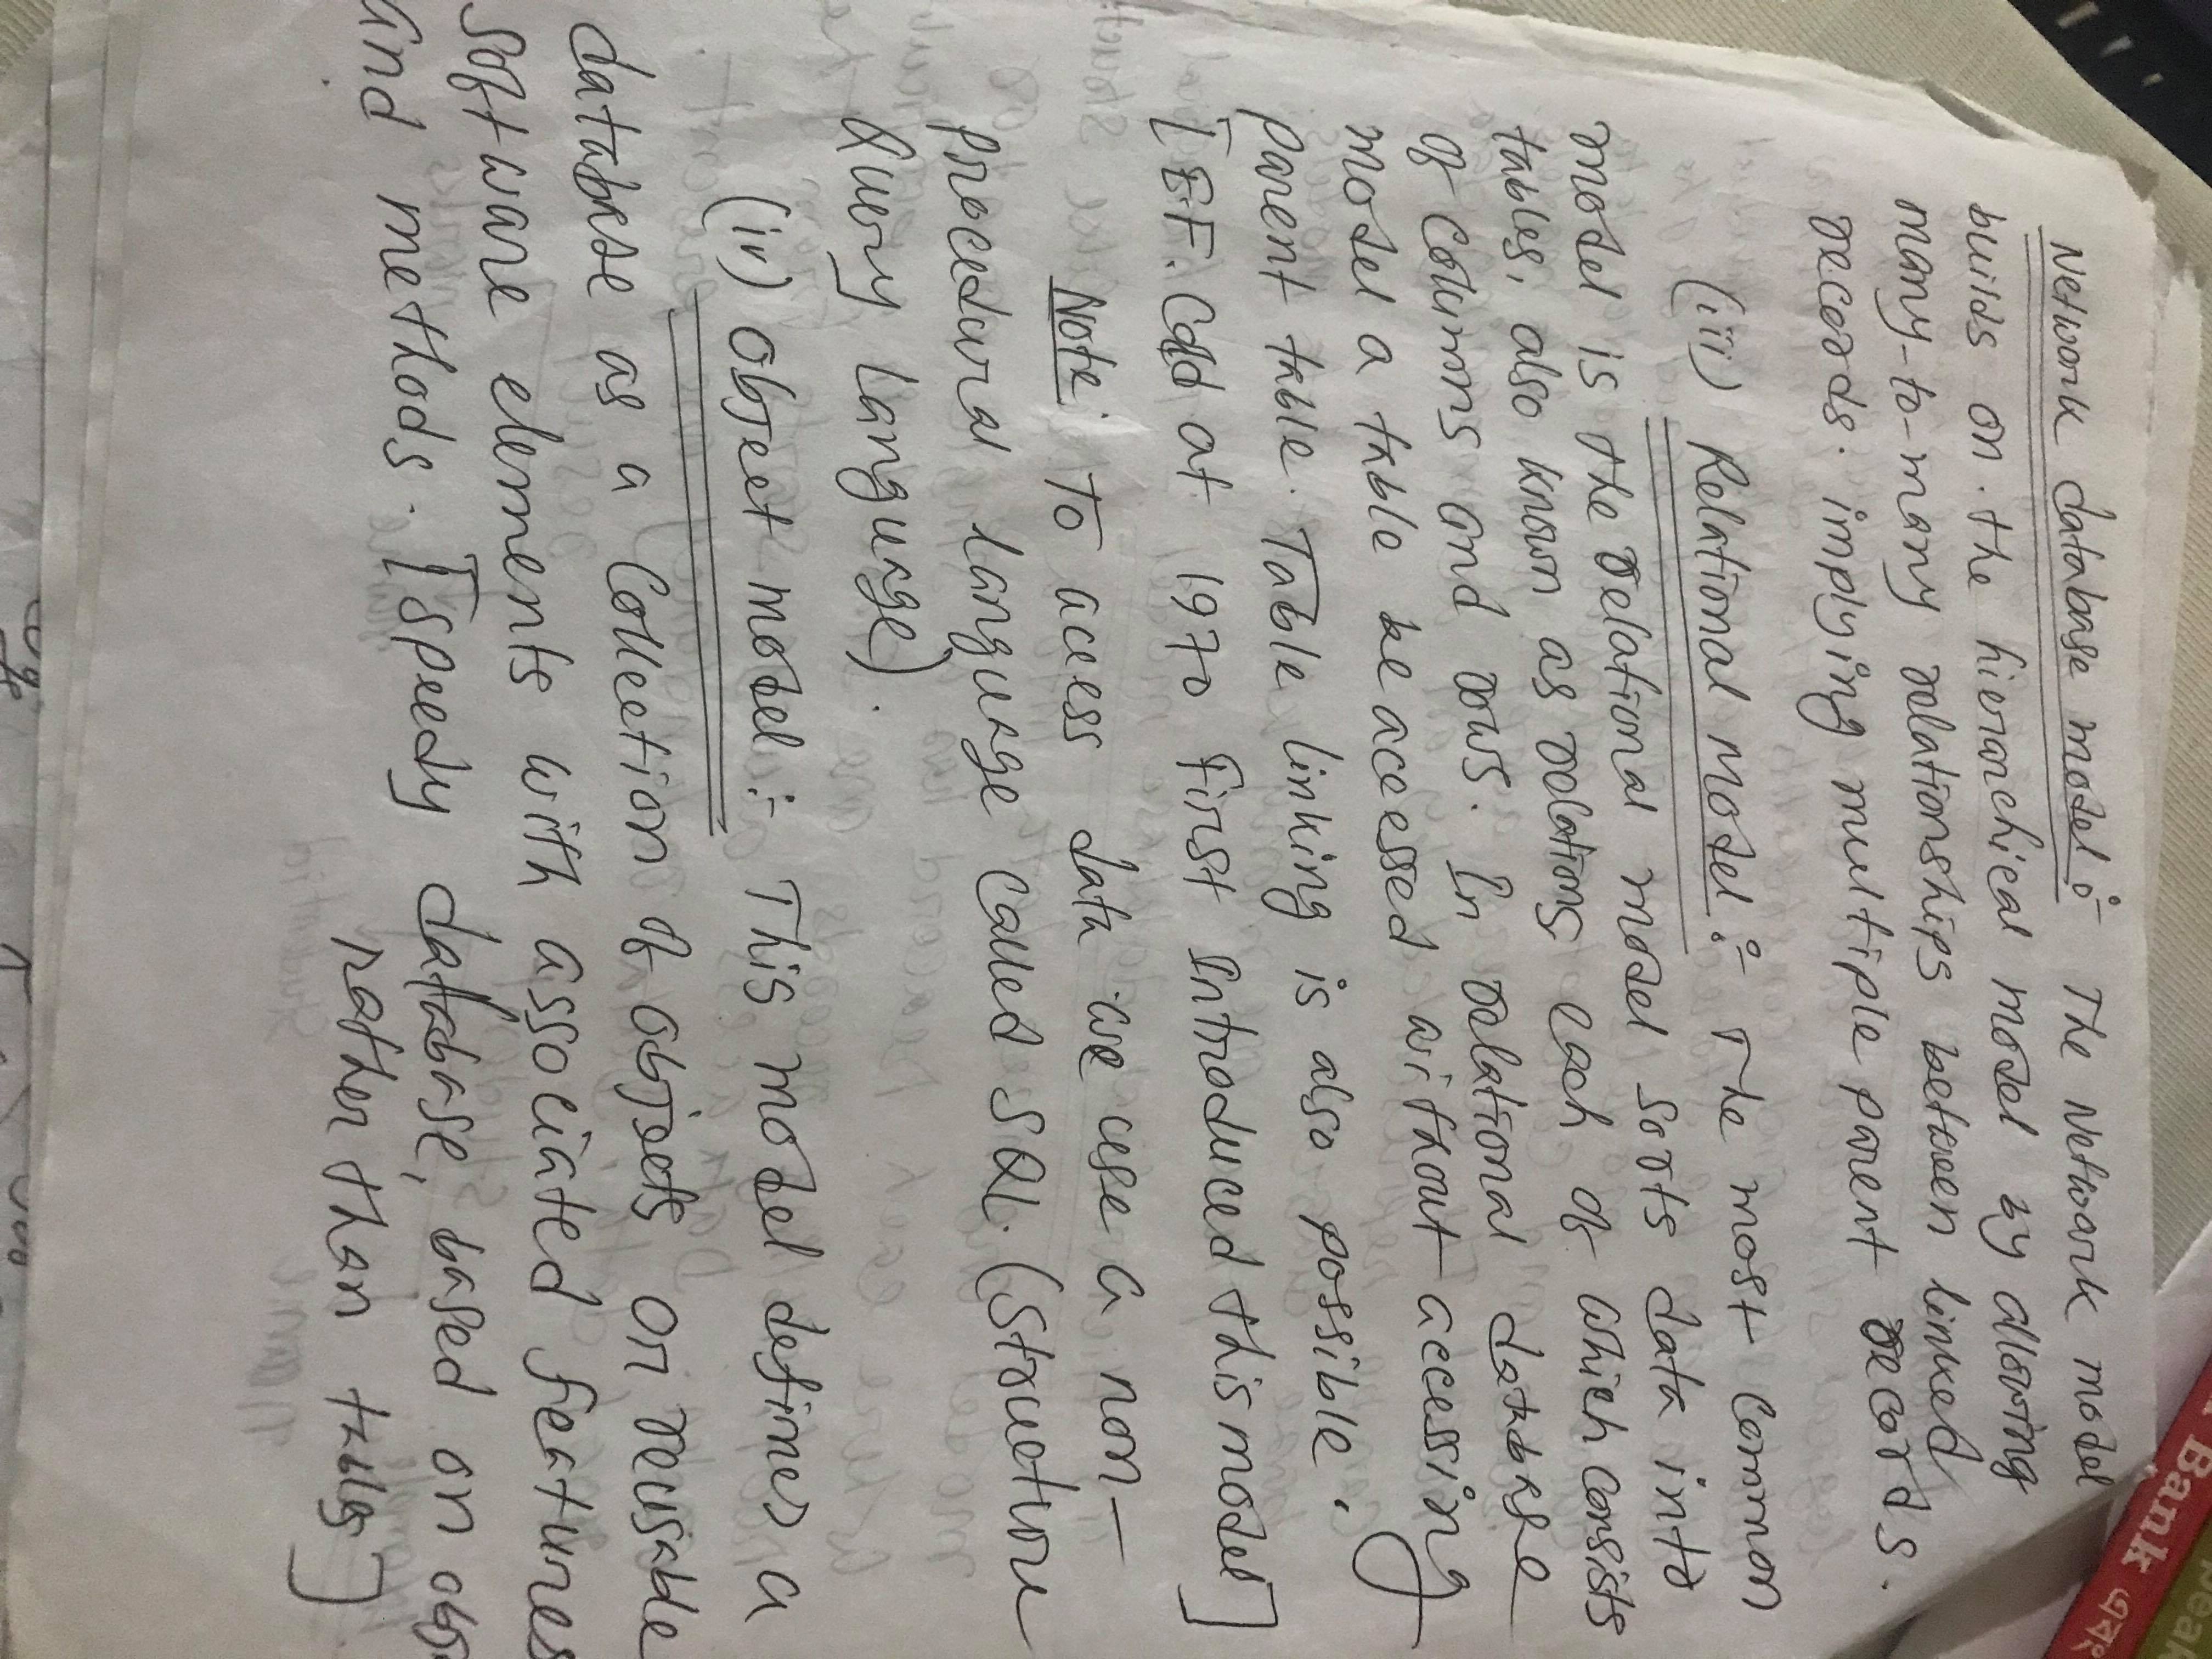 Bank এবং
peak
Network database model :- The Network model
builds on the hierarchical model by allowing
many-to-many relationships between linked
records. implying multiple parent records.
(iii) Relational Model :- The most common
model is the relational model sorts data into
tables, also known as relations, each of which consists
of columns and rows. In relational database
model a table be accessed without accessing
parent table. Table linking is also possible.
[EF. Codd at 1970 First Introduced this model]
Note: To access data we use a non-
procedural language called SQL. (Structure
Query Language).
(iv) Object model :- This model defines a
database as a collection of objects or reusable
software elements with associated features
and methods. [speedy database, based on obj
rather than tables]